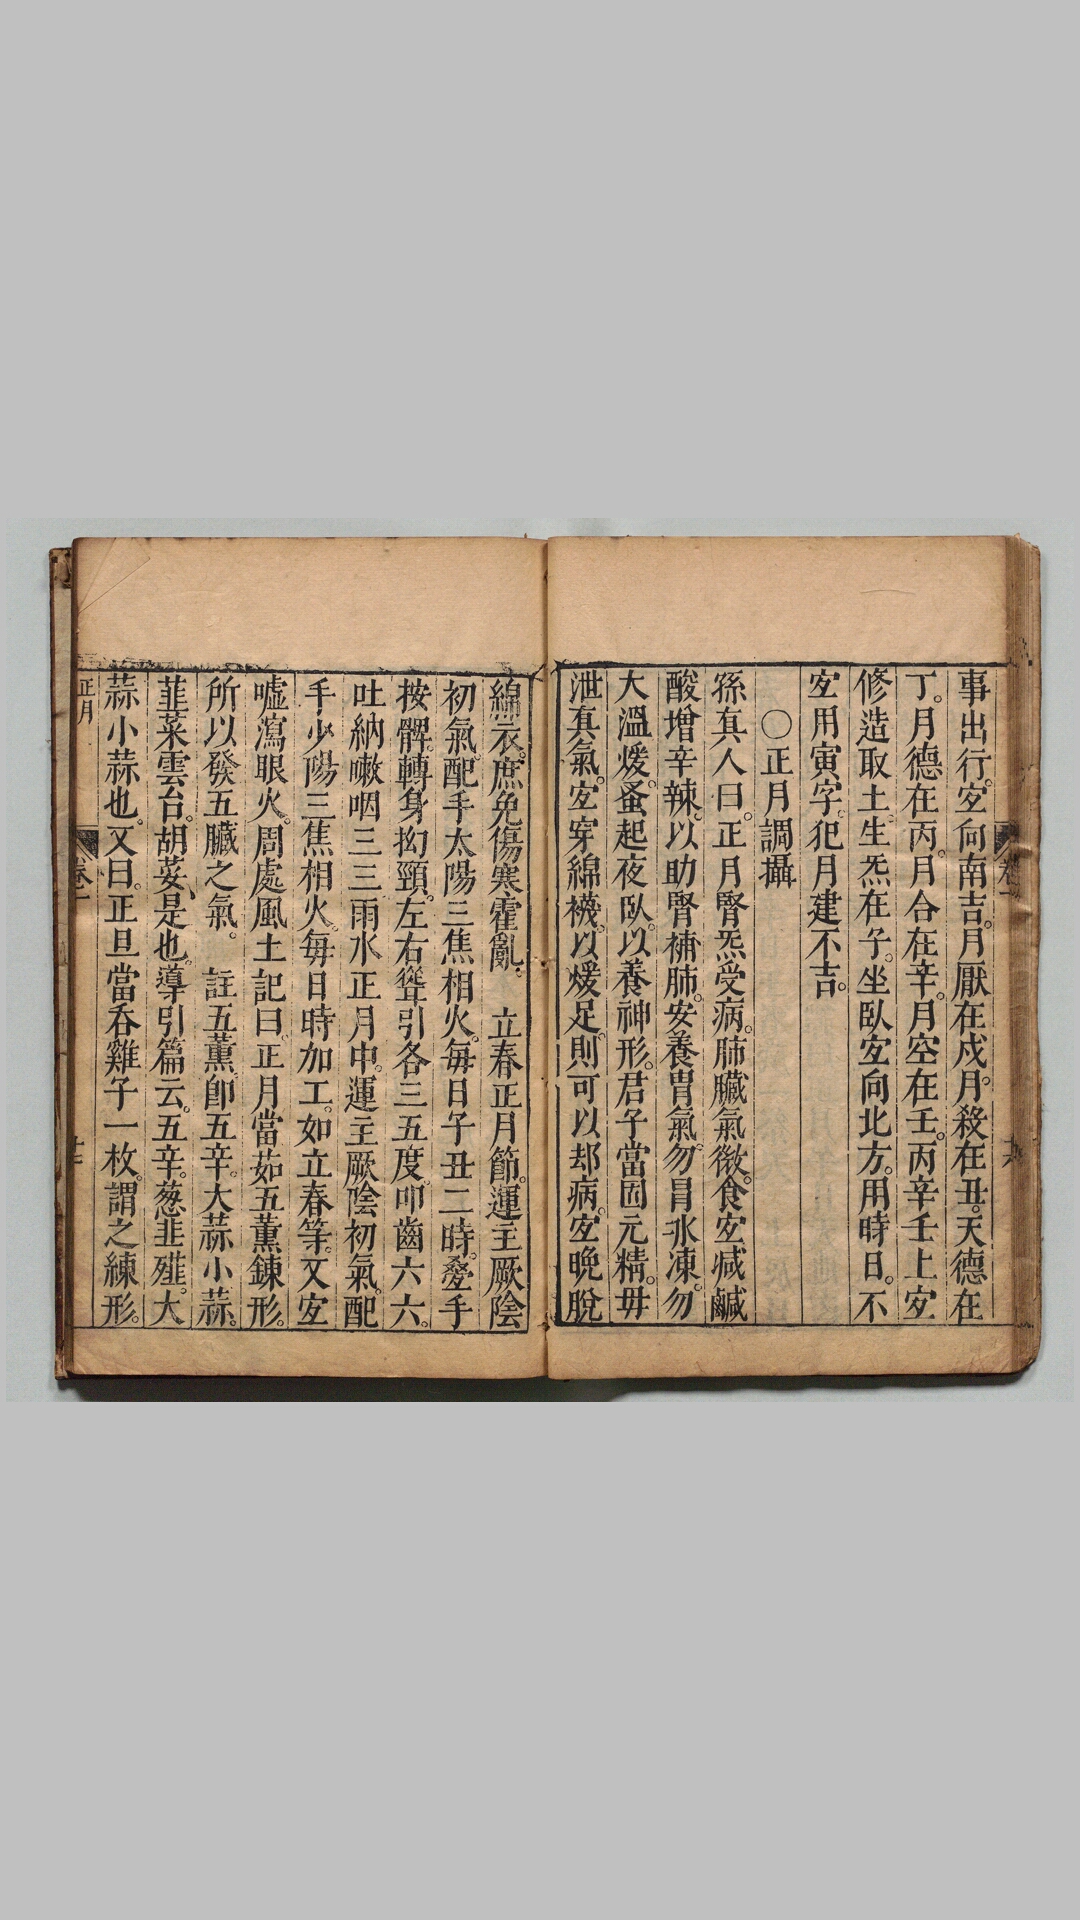 事出行。宐向南吉。月厭在戍月。殺在丑。天德在
丁。月德在丙。月合在辛。月空在壬。丙辛壬上宐
修造取土生炁在子。坐臥宐向北方。用時日。不
宐用寅字。犯月建不吉。
○正月調攝
孫真人曰。正月腎炁受病。肺臟氣微。食宐减鹹
酸增辛辣。以助腎補肺。安養胃氣。勿冒氷凍。勿
大溫煖。蚤起夜臥。以養神形。君子當固元精。毋
泄真氣。宐穿綿襪。以煖足。則可以却病。宐晚脫
綿衣。庶免傷寒霍亂。 立春正月節。運主厥陰
初氣。配手太陽三焦相火。每日子丑二時。疊手
按髀。轉身拗頸。左右聳引各三五度。叩齒六六。
吐納嗽咽三三雨水正月中。運主厥陰初氣。配
手少陽三焦相火。每日時加工。如立春等。又宐
噓瀉眼火。周處風土記曰。正月當茹五薰鍊形。
所以發五臟之氣。 註五薰。卽五辛。大蒜小蒜。
韮菜雲台。胡荽是也。導引篇云。五辛。葱韭薤。大
蒜小蒜也。又曰。正旦當吞雞子一枚。謂之練形。
正月
卷一